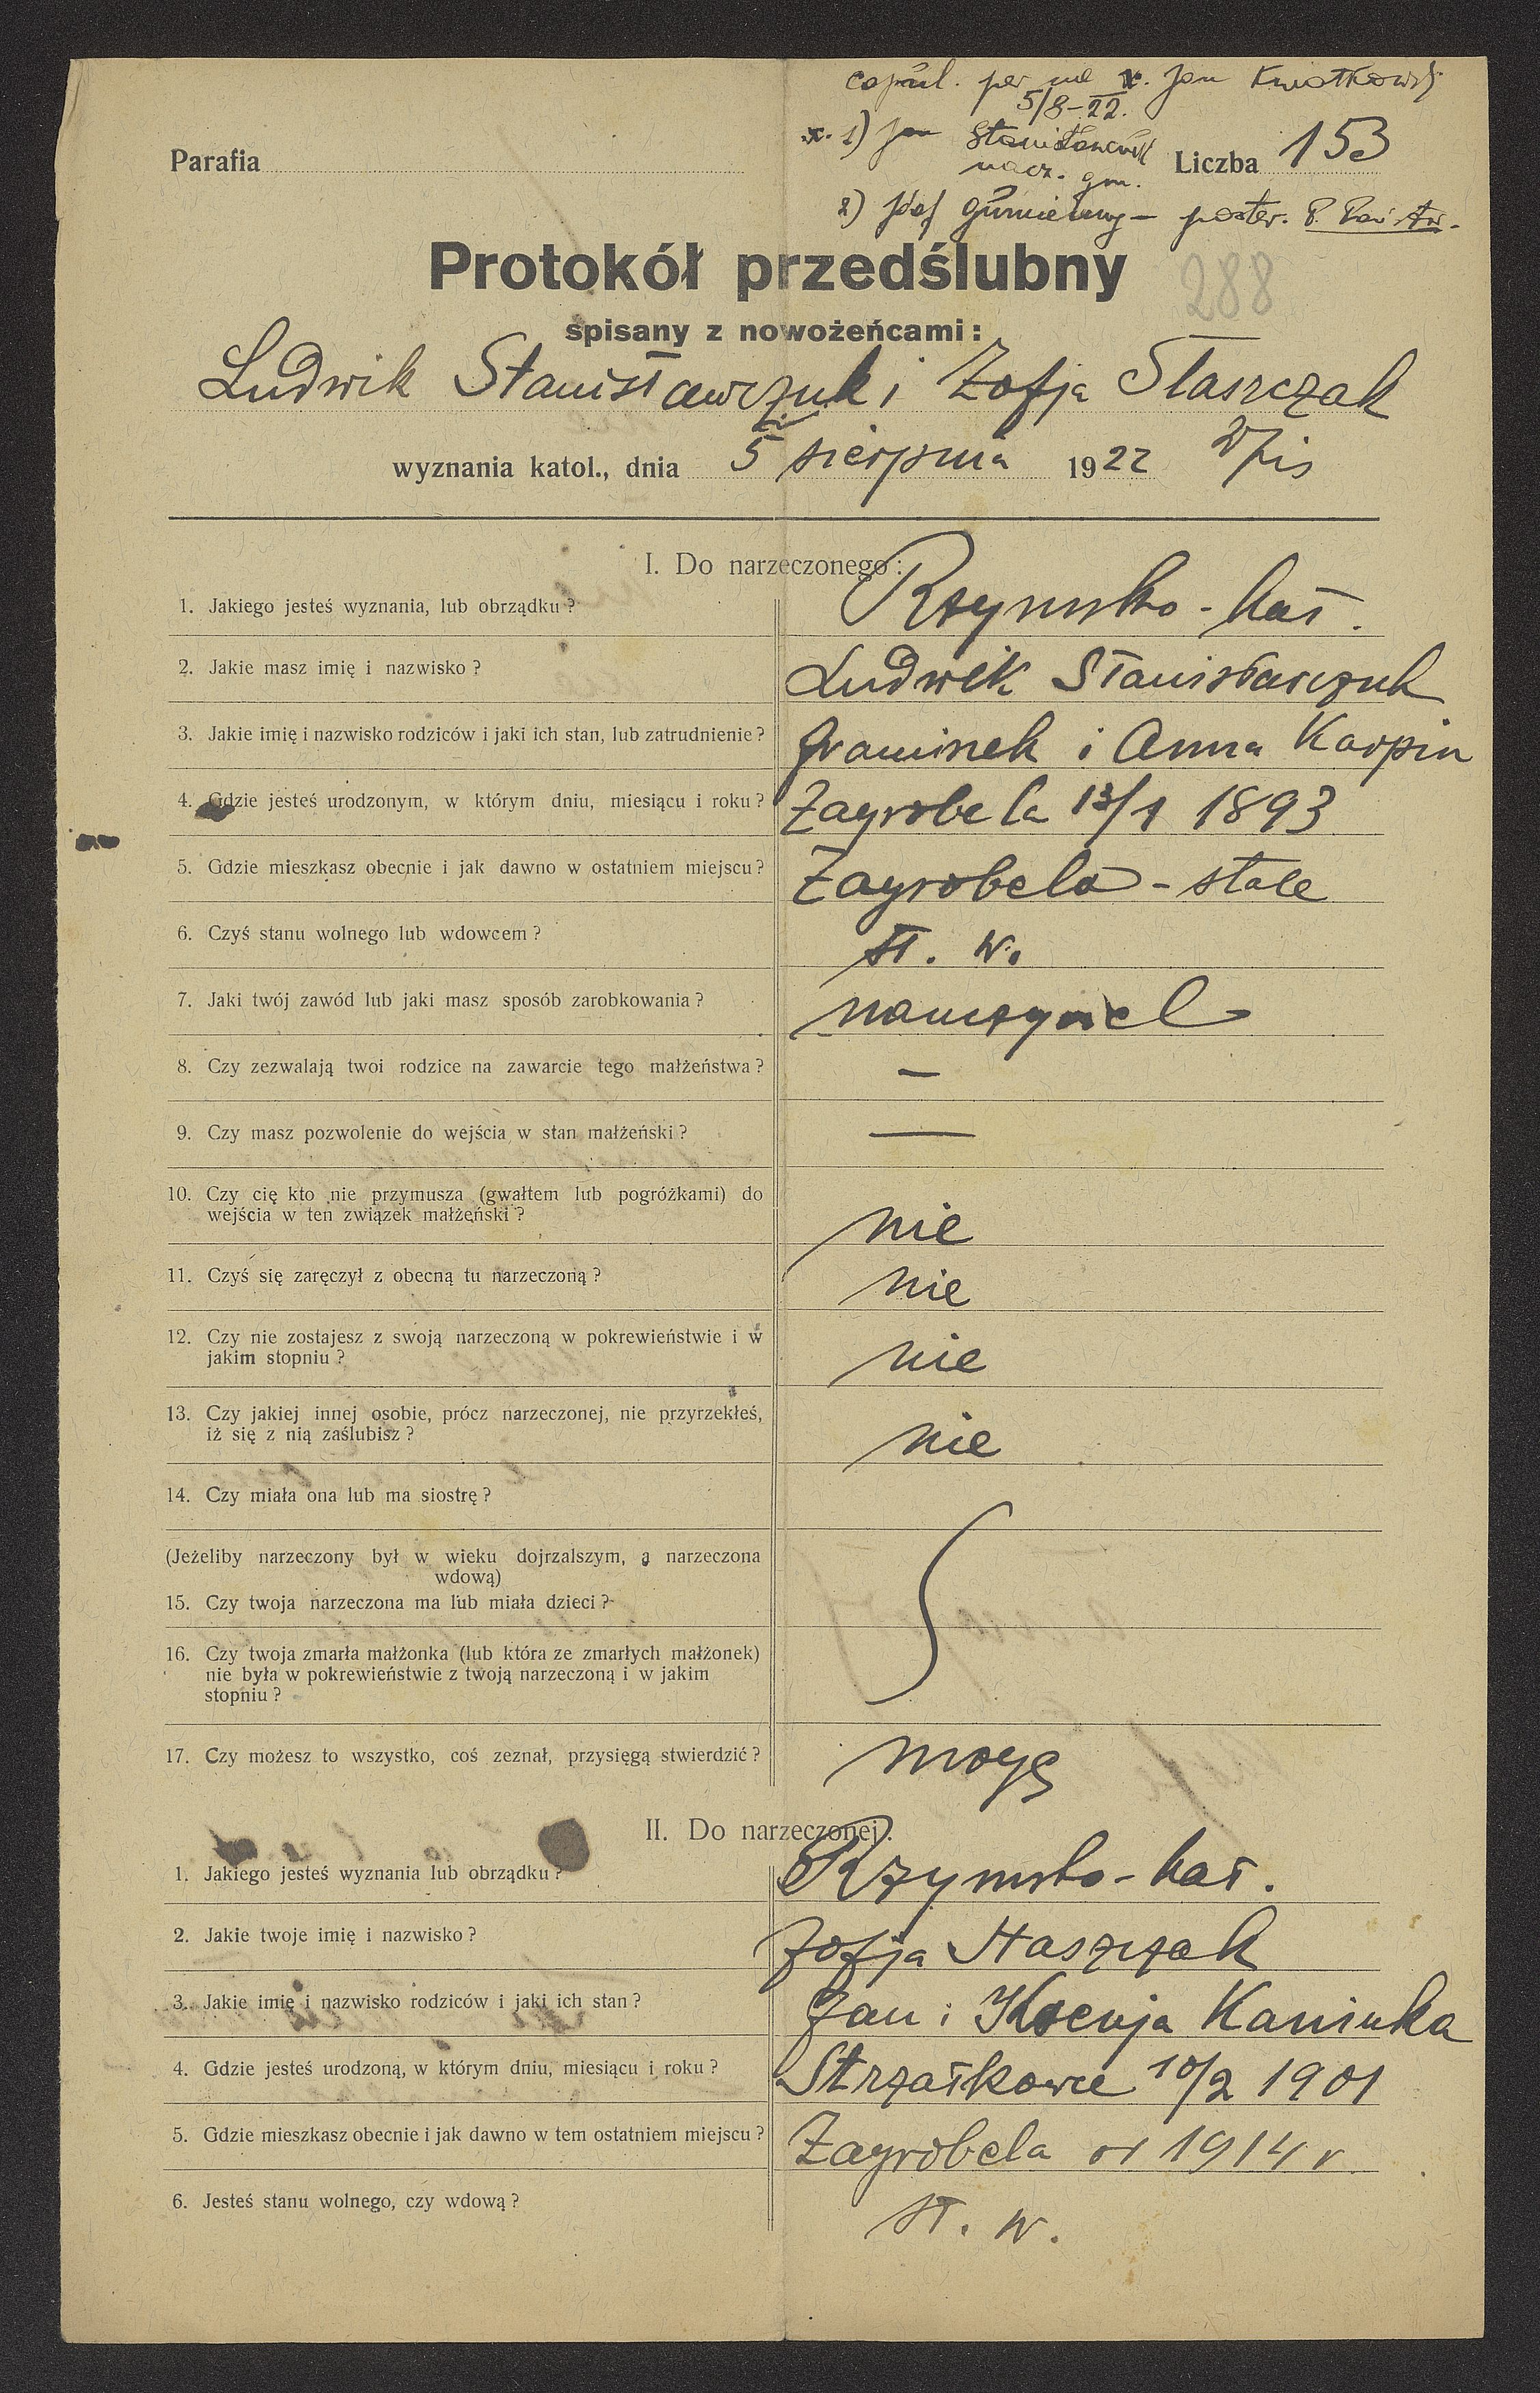 copul. per me x. Jan Kwiatkowski
5/8-22.
x. 1) Jan Stanisławczuk
nacz. gm.
Parafia
Liczba 153
2) Józef – poster. P. Państw.
Protokół przedślubny
288
spisany z nowożeńcami:
Ludwik Stanisławczuk i Zofja Staszczak
wyznania katol., dnia 5 sierpnia 1922
I. Do narzeczonego:
1. Jakiego jesteś wyznania, lub obrządku? Rzymsko-kat.
2. Jakie masz imię i nazwisko? Ludwik Stanisławczuk
3. Jakie imię i nazwisko rodziców i jaki ich stan, lub zatrudnienie? i Anna Karpin
4. Gdzie jesteś urodzonym, w którym dniu, miesiącu i roku? Zagrobela 13/1 1893
5. Gdzie mieszkasz obecnie i jak dawno w ostatniem miejscu? Zagrobela - stale
6. Czyś stanu wolnego lub wdowcem? st. w.
7. Jaki twój zawód lub jaki masz sposób zarobkowania? nauczyciel
8. Czy zezwalają twoi rodzice na zawarcie tego małżeństwa? —
9. Czy masz pozwolenie do wejścia w stan małżeński? —
10. Czy cię kto nie przymusza (gwałtem lub pogróżkami) do
wejścia w ten związek małżeński? nie
11. Czyś się zaręczył z obecną tu narzeczoną? nie
12. Czy nie zostajesz z swoją narzeczoną w pokrewieństwie i w
jakim stopniu? nie
13. Czy jakiej innej osobie, prócz narzeczonej, nie przyrzekłeś,
iż się z nią zaślubisz? nie
14. Czy miała ona lub ma siostrę?
(Jeżeliby narzeczony był w wieku dojrzalszym, a narzeczona
wdową)
15. Czy twoja narzeczona ma lub miała dzieci?
16. Czy twoja zmarła małżonka (lub która ze zmarłych małżonek)
nie była w pokrewieństwie z twoją narzeczoną i w jakim
stopniu?
17. Czy możesz to wszystko, coś zeznał, przysięgą stwierdzić? mogę
II. Do narzeczonej:
1. Jakiego jesteś wyznania lub obrządku? Rzymsko-kat.
2. Jakie twoje imię i nazwisko? Zofja Staszczak
3. Jakie imię i nazwisko rodziców i jaki ich stan? Jan i Ksenja Kaniuka
4. Gdzie jesteś urodzoną, w którym dniu, miesiącu i roku? Strzałkowce 10/2 1901
5. Gdzie mieszkasz obecnie i jak dawno w tem ostatniem miejscu? Zagrobela od 1914 r
6. Jesteś stanu wolnego, czy wdową? st. w.